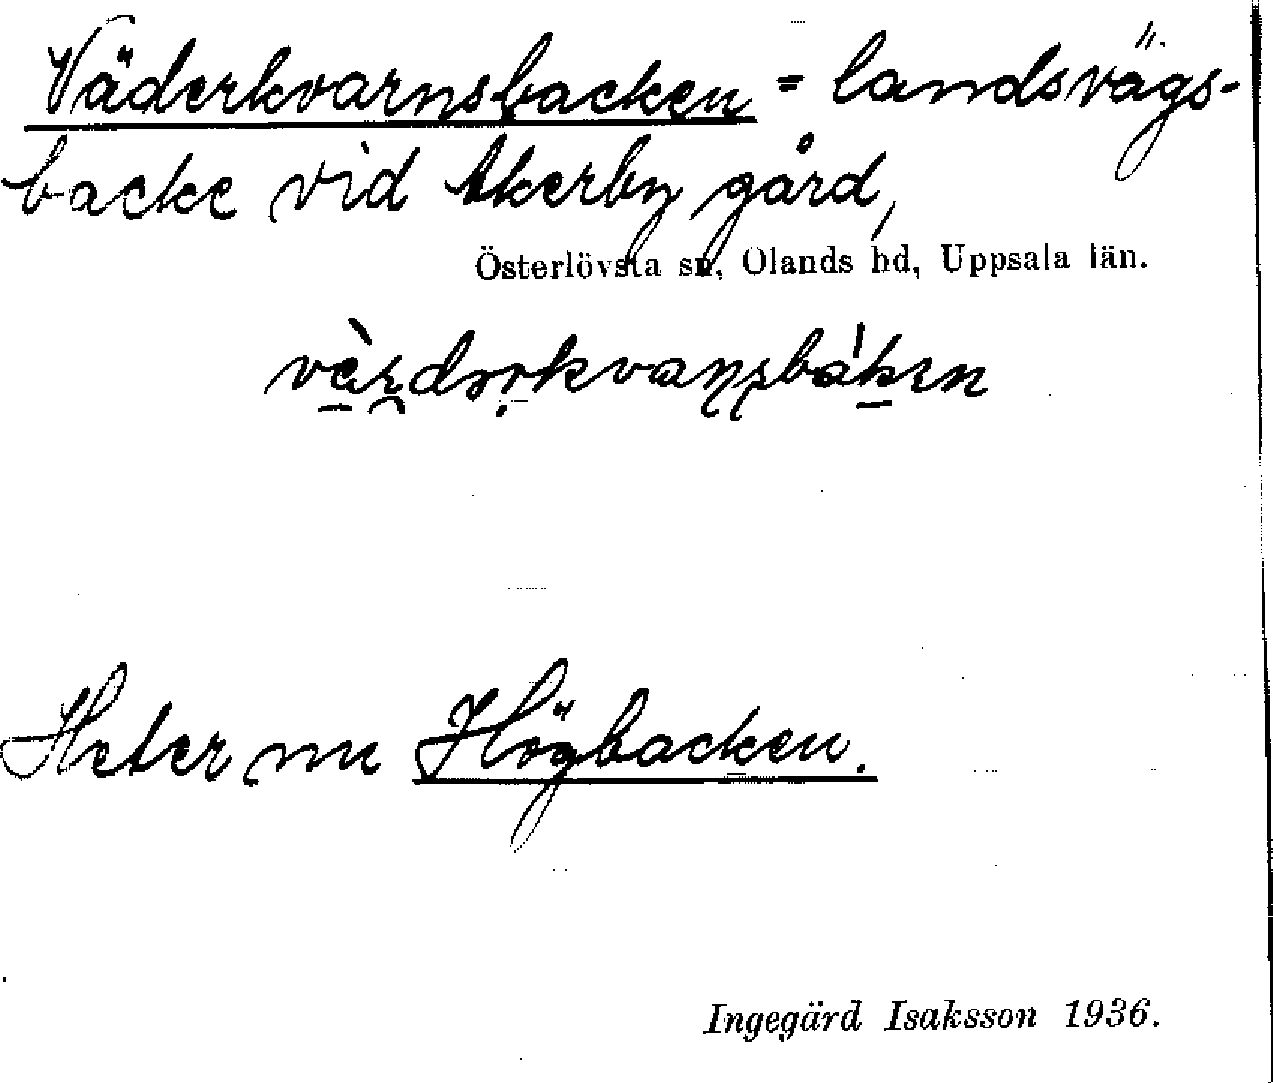 Väderkvarnsbacken = landsvägs-
backe vid Åkerby gård,
Österlövsta sn, Olands hd, Uppsala län.
Heter nu Högbacken.
Ingegärd Isaksson 1936.